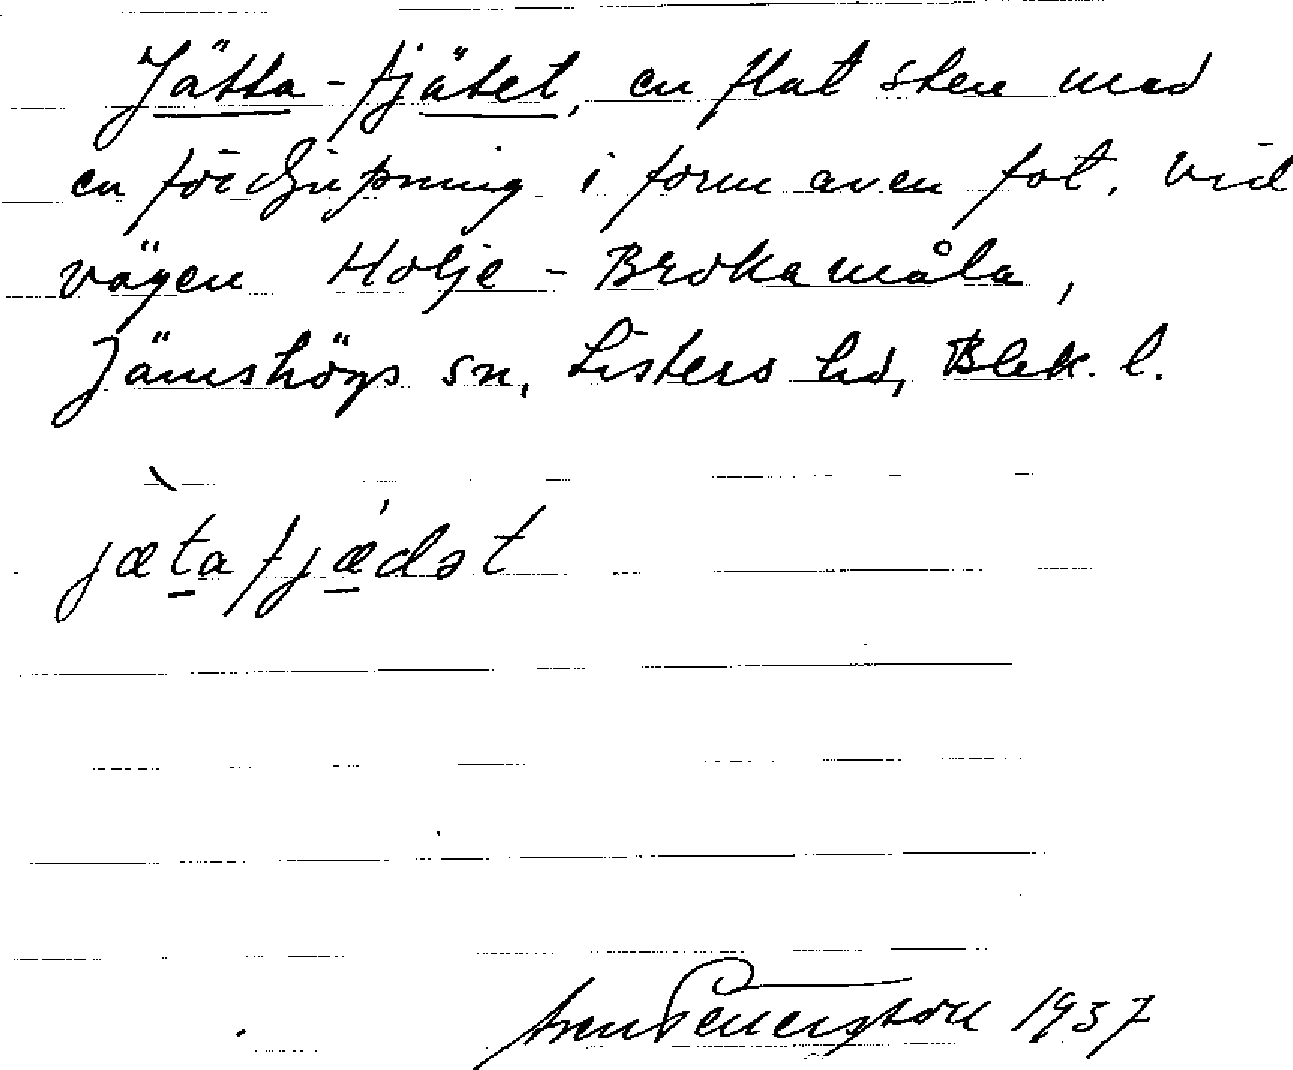 Jätta-fjätet, en flat sten med
en fördjupning i form av en fot, vid
vägen Holje - Brokamåla,
Jämshögs sn, Listers hd, Blek. l.
jætafjædət
1937